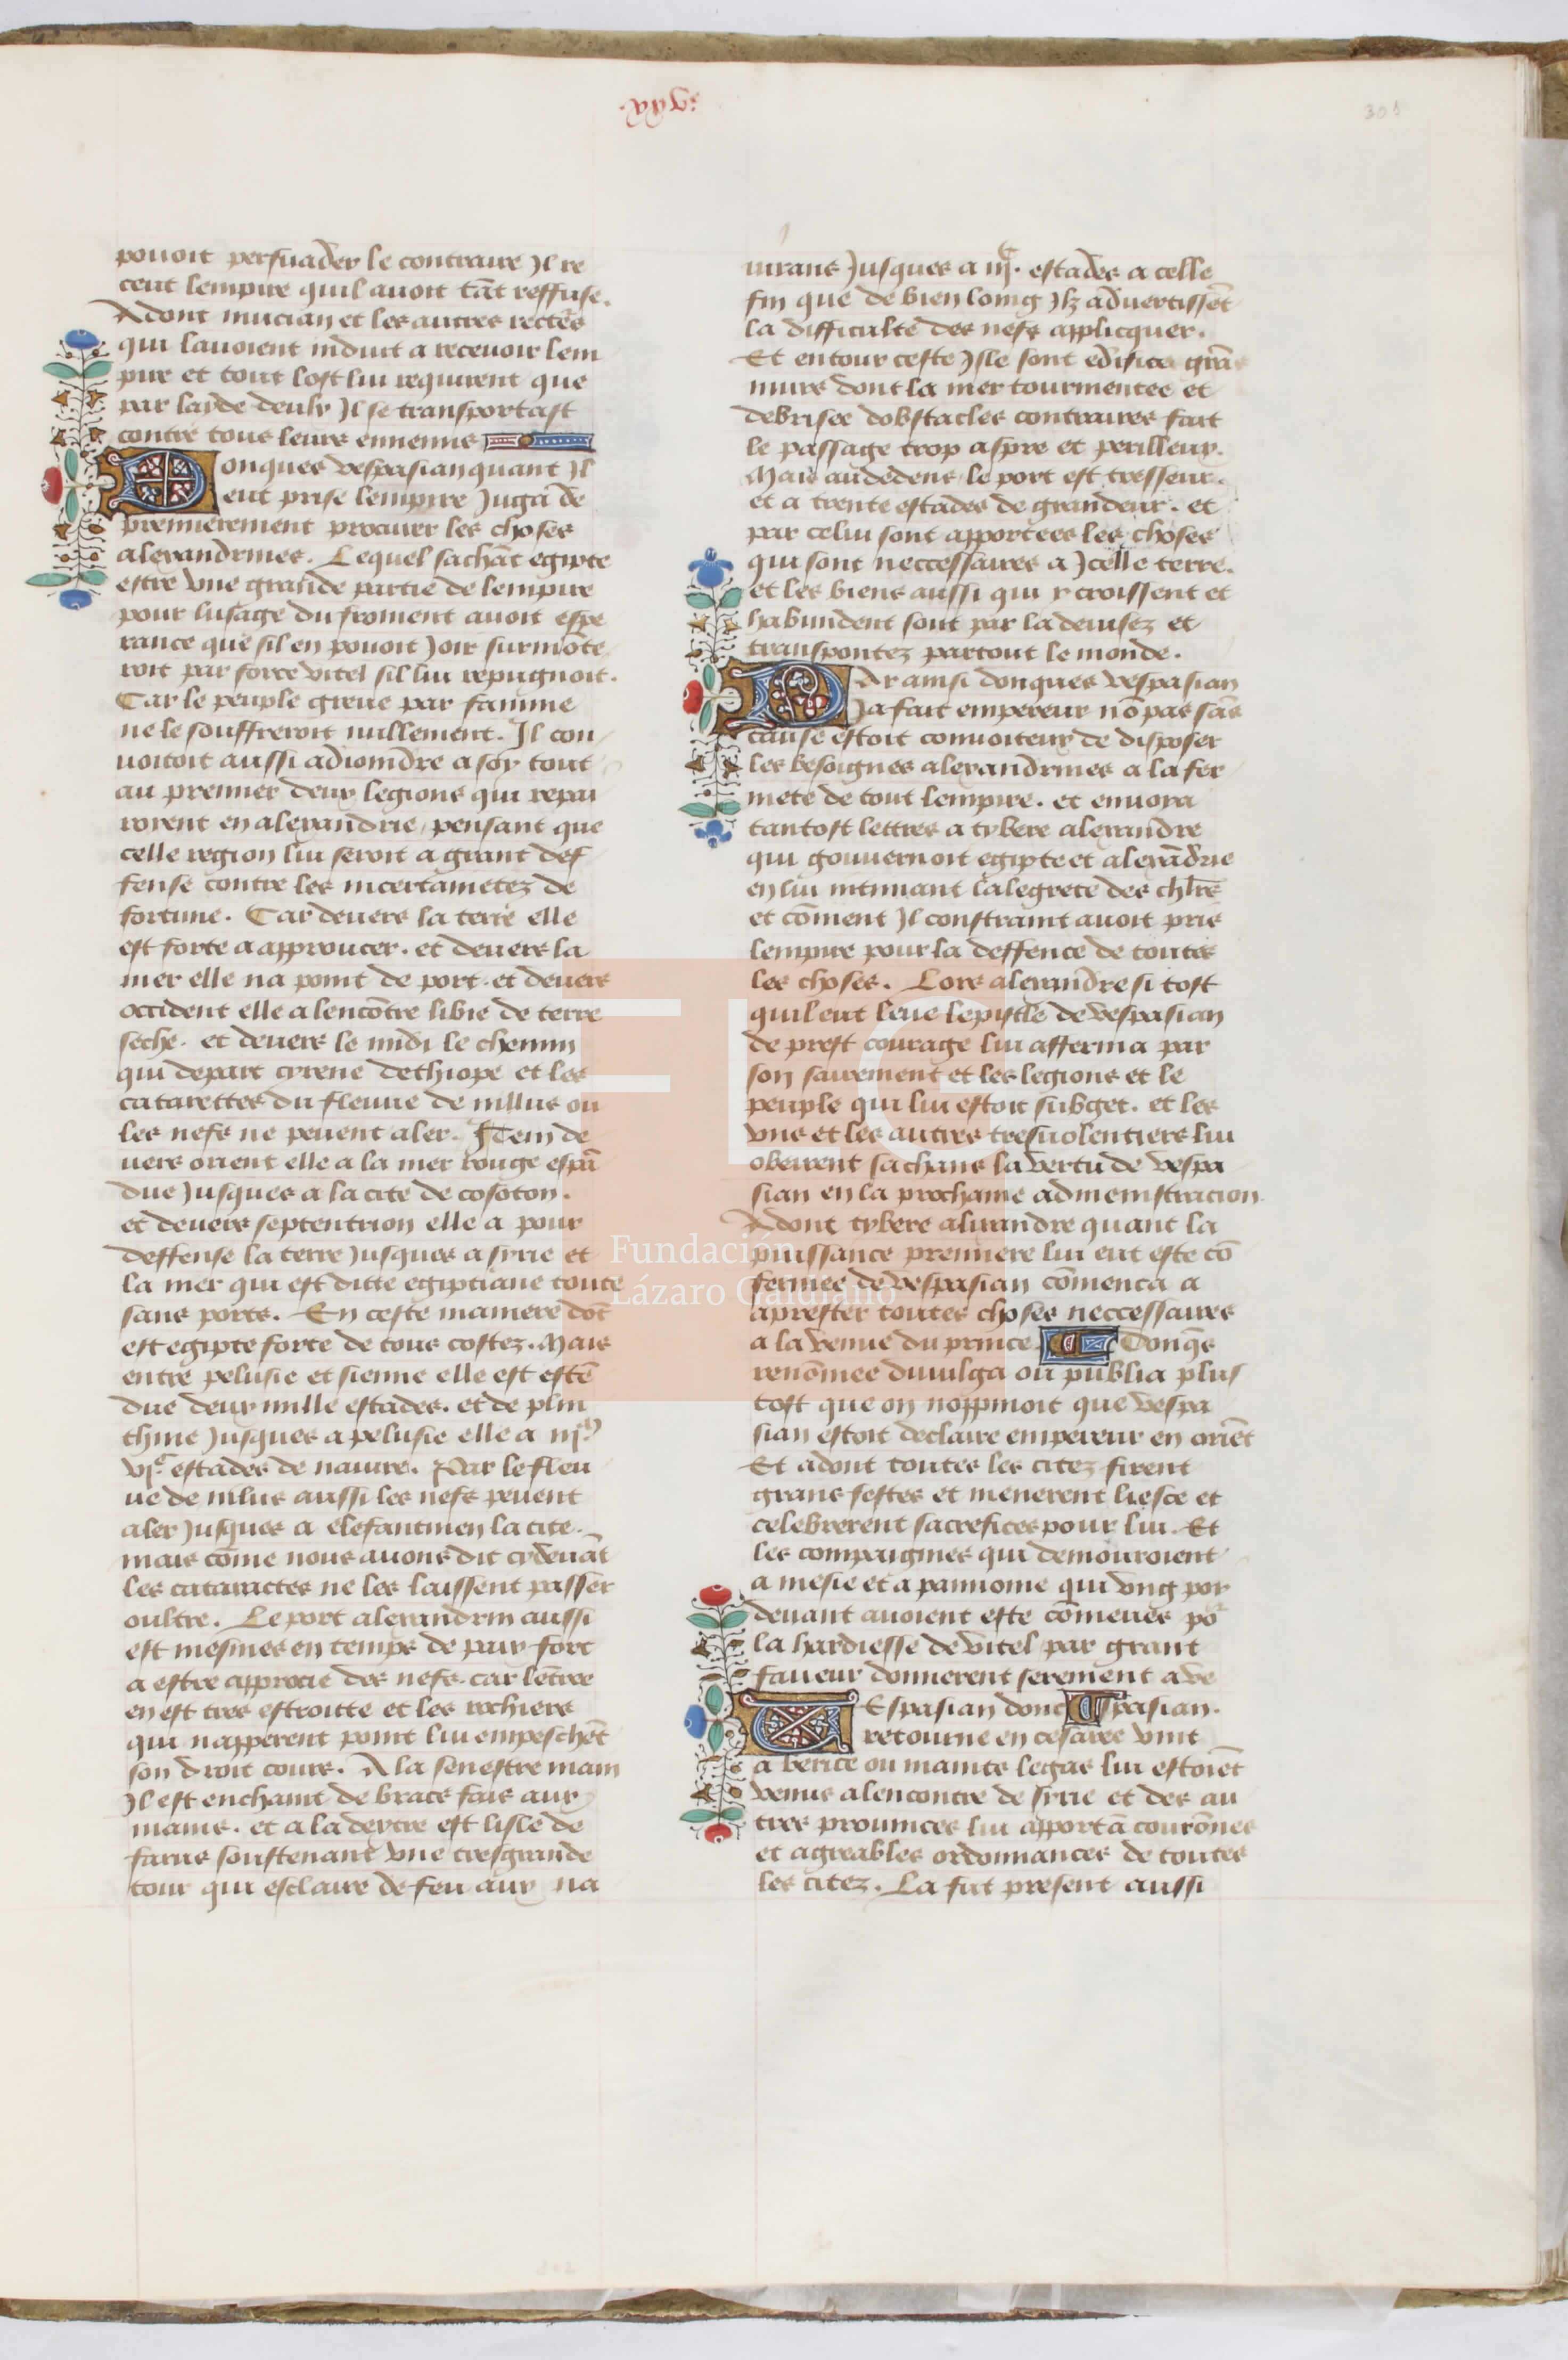 .xxvi.
301
pouoit persuader le contraire Jl re
ceut lempire quil auoit tāt reffuse.
Adont mucian et les autres rectēs
qui lauoient induit a receuoir lem
pire et tout lost lui requirent que
par layde deulx Jl se transportast
contre tous leurs ennemis
Donques vespasian quant Jl
eut prise lempire Juga de
premierement procurer les choses
alexandrines. Lequel sachāt egipte
estre vne grande partie de lempire
pour lusage du froment auoit espe
rance que sil en pouoit Joir surmōte
roit par force vitel sil lui repugnoit.
Car le peuple greue par famine
ne le souffreroit nullement. Il con
uoitoit aussi adioindre a soy tout
au premier deux legions qui repai
roient en alexandrie, pensant que
celle region lui seroit a grant def
fense contre les incertainetez de
fortune. Car deuers la terre elle
est forte a approucer. et deuers la
mer elle na point de port. et deuers
occident elle a lencōtre libie de terre
seche. et deuers le midi le chemin
qui depart cyrene dethiope et les
catarettes du fleuue de nillus ou
les nefs ne peuent aler. Item de
uers orient elle a la mer rouge espā
due Jusques a la cite de cosoton.
et deuers septentrion elle a pour
deffense la terre Jusques a syrie et
la mer qui est ditte egiptiane toute
sans ports. En ceste maniere dōt
est egipte forte de tous costez. Mais
entre pelusie et sienne elle est estē
due deux mille estades. et de plin
thine Jusques a pelusie elle a iijm
vjc estades de nauire. Par le fleu
ue de nilus aussi les nefs peuent
aler Jusques a elefantinen la cite.
mais cōme nous auons dit cydeuāt
les cataractes ne les laissent passer
oultre. Le port alexandrin aussi
est mesmes en temps de paix fort
a estre approcie des nefs. car lētree
en est tres estroitte et les rochiers
qui napperent point lui empeschēt
son droit cours. A la senestre main
Jl est enchaint de bracs fais aux
mains. et a la dextre est lisle de
farus soustenant vne tresgrande
tour qui esclaire de feu aux na
uirans Jusques a iijc. estades a celle
fin que de bien loing Jlz aduertissēt
la difficulte des nefs applicquer.
Et entour ceste Jsle sont edifiez grās
murs dont la mer tourmentee et
debrisee dobstacles contraires fait
le passage trop aspre et perilleux.
Mais audedens le port est tresseur.
et a trente estades de grandeur. et
par celui sont apportees les choses
qui sont neccessaires a Jcelle terre.
et les biens aussi qui y croissent et
habundent sont par la deuisez et
transportez partout le monde.
Par ainsi donques vespasian
Ja fait empereur nō pas sās
cause estoit conuoiteux de disposer
les besoignes alexandrines a la fer
mete de tout lempire. et enuoya
tantost lettres a tybere alexandre
qui gouuernoit egipte et alexādrie
en lui intimant lalegrete des chlrs
et cōment Jl constraint auoit pris
lempire pour la deffence de toutes
les choses. Lors alexandre si tost
quil eut leue lepistle de vespasian
de prest courage lui afferma par
son sairement et les legions et le
peuple qui lui estoit subget. et les
vns et les autres tresuolentiers lui
obeirent sachans la vertu de vespa
sian en la prochaine admenistracion
Adont tybere alixandre quant la
puissance premiere lui eut este cō
fermee de vespasian cōmenca a
aprester toutes choses neccessaires
a la venue du prince Donqs
renōmee diuulga ou publia plus
tost que on noppinoit que vespa
sian estoit declaire empereur en oriēt
Et adont toutes les citez firent
grans festes et menerent liesce et
celebrerent sacrefices pour lui. Et
les compaignies qui demouroient
a mesie et a pannonie qui vng por
deuant auoient este cōmeues po
la hardiesse de vitel par grant
faueur donnerent serement a ve
Uespasian donc spasian.
retourne en cesaree vint
a berite ou maints legas lui estoiēt
venus alencontre de syrie et des au
tres prouinces lui apportā courōnes
et agreables ordonnances de toutes
les citez. La fut present aussi
Fundación
Lázaro Galdiano
FLG